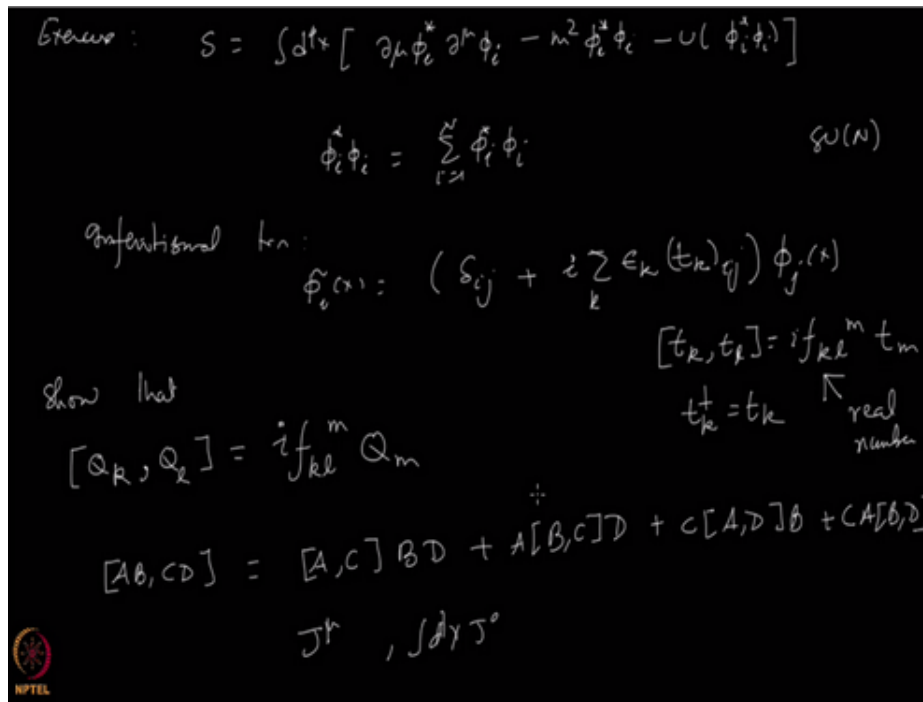 Exercise : S = ∫d⁴x [ ∂μ ϕᵢ* ∂^μ ϕᵢ − m² ϕᵢ* ϕᵢ − U( ϕᵢ* ϕᵢ) ]
ϕᵢ* ϕᵢ = ∑_{i=1}^{N} ϕᵢ* ϕᵢ SU(N)
Infinitesimal trn :
ϕ̃ᵢ(x) = ( δ_{ij} + i ∑_k ϵ_k (t_k)_{ij} ) ϕ_j(x)
[t_k, t_l] = i f_{kl}^m t_m
t_k^† = t_k ↖ real number
Show that
[Q_k, Q_l] = i f_{kl}^m Q_m
[AB, CD] = [A, C] BD + A[B, C] D + C[A, D] B + CA[B, D]
J^μ , ∫d³x J⁰
NPTEL